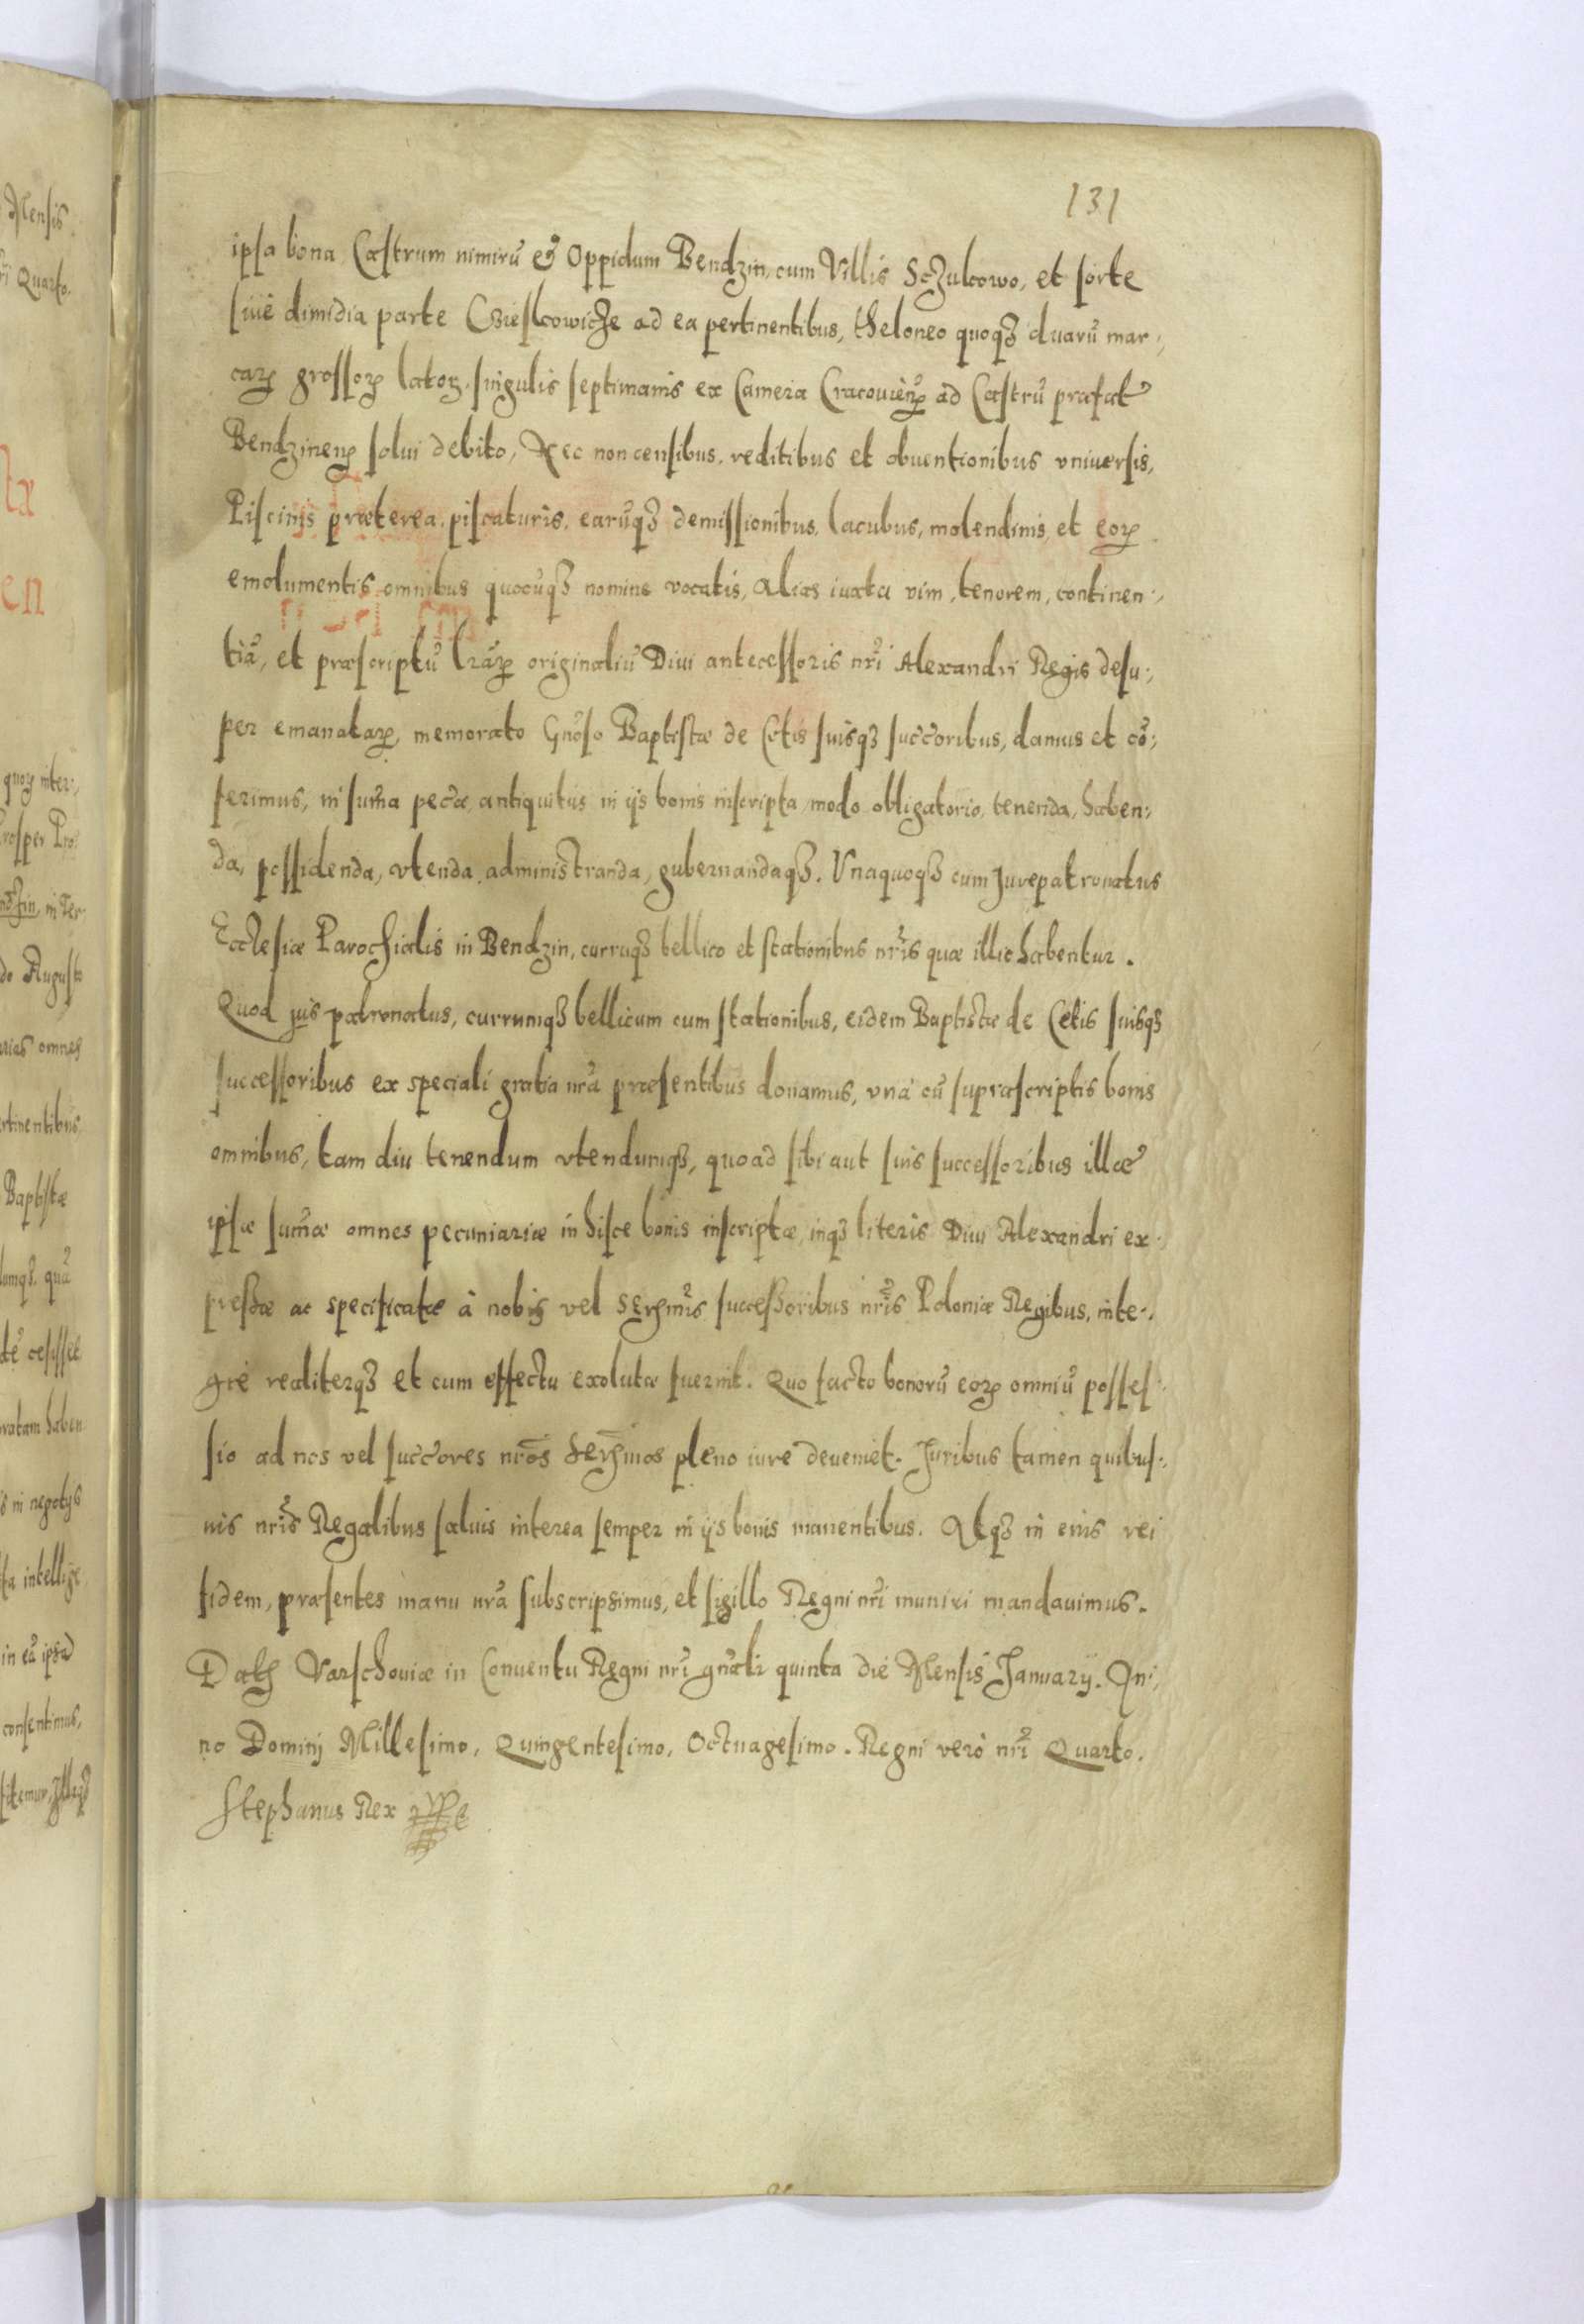 131
ipsa bona Castrum nimirũ et Oppidum Bendzin, cum Villis Sczulcowo, et sorte
siue dimidia parte Czieslcowicze ad ea pertinentibus, theloneo quoqꝫ duarũ mar:,
carꝝ grossorꝝ latorꝝ, singulis septimanis ex Camera Cracouienꝭ ad Castrũ præfat
Bendzinenꝭ solui debito, Nec non censibus, reditibus et obuentionibus vniuersis,
Piscinis præterea, piscaturis, earũqꝫ demissionibus, lacubus, molendinis, et eorꝝ
emolumentis omnibus quocũqꝫ nomine vocatis, Alias iuxta vim, tenorem, continen:,
tiã, et præscriptũ lrãꝝ originaliũ Diui antecessoris nrĩ Alexandri Regis desu:,
per emanatarꝝ, memorato Gnoso Baptistæ de Cetis suisqꝫ succoribus, damus et cõ:,
ferimus, in sum̃a pecũæ antiquitus in ijs bonis inscripta, modo obligatorio, tenenda, haben:,
da, possidenda, vtenda, administranda, gubernandaqꝫ. Vnaquoqꝫ cum Jurepatronatus
Ecclesiæ Parochialis in Bendzin, curruqꝫ bellico et stationibus nrĩs quæ illic habentur.
Quod jus patronatus, currumqꝫ bellicum cum stationibus, eidem Baptistæ de Cetis suisqꝫ
successoribus ex speciali gratia nrã præsentibus donamus, vnà cũ suprascriptis bonis
omnibus, tam diu tenendum vtendumqꝫ, quoad sibi aut suis successoribus illæ
ipsæ sum̃æ omnes pecuniariæ in hisce bonis inscriptæ, inqꝫ literis Diui Alexandri ex:,
pressæ ac specificatæ à nobis vel Serẽmis successoribus nrĩs Poloniæ Regibus, inte:,
grè realiterqꝫ et cum effectu exolutæ fuerint. Quo facto bonorũ eorꝝ omniũ posses:,
sio ad nos vel succores nrõs Serẽmos pleno iure deueniet. Juribus tamen quibus:,
uis nrĩs Regalibus saluis interea semper in ijs bonis manentibus. Atqꝫ in eius rei
fidem, præsentes manu nrã subscripsimus, et sigillo Regni nrĩ muniri mandauimus.
Datꝭ Varschouiæ in Conuentu Regni nrĩ gnãli quinta die Mensis January. An:,
no Dominj Millesimo, Quingentesimo, Octuagesimo. Regni verò nrĩ Quarto.
Stephanus Rex